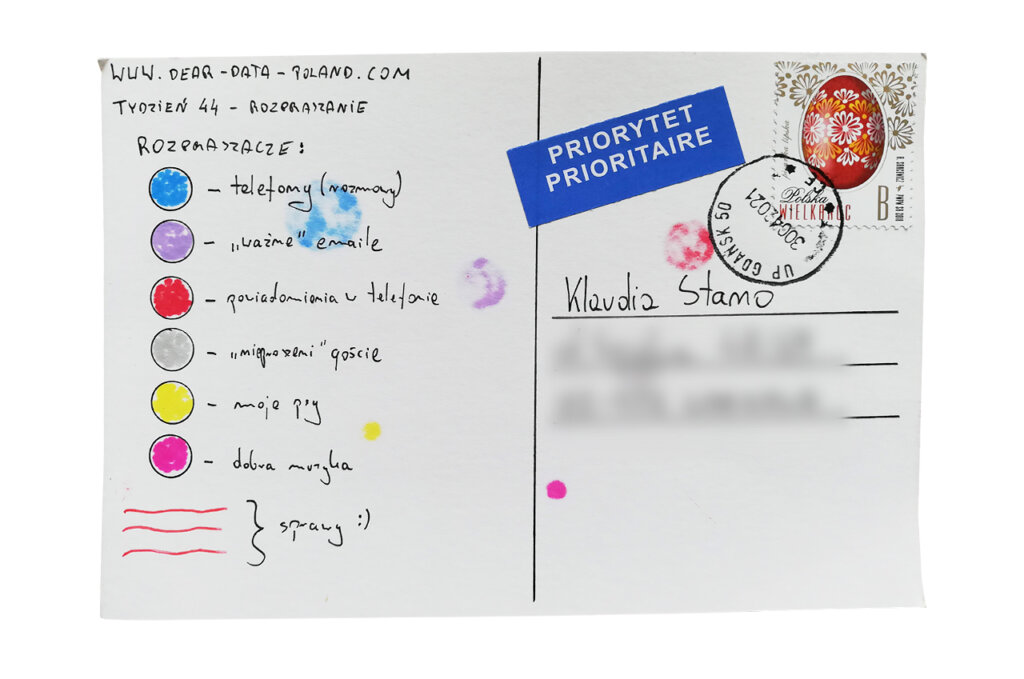 WWW.DEAR-DATA-POLAND.COM
TYDZIEŃ 44 - ROZPRASZANIE
ROZPRASZACZE:
- telefony (rozmowy)
- „ważne" emaile
- powiadomienia w telefonie
- „nieproszeni" goście
- moje psy
- dobra muzyka
} sprawy :)
PRIORYTET
PRIORITAIRE
Polska
WIELKANOC
B
UP GDAŃSK 50
30042021
Klaudia Stano